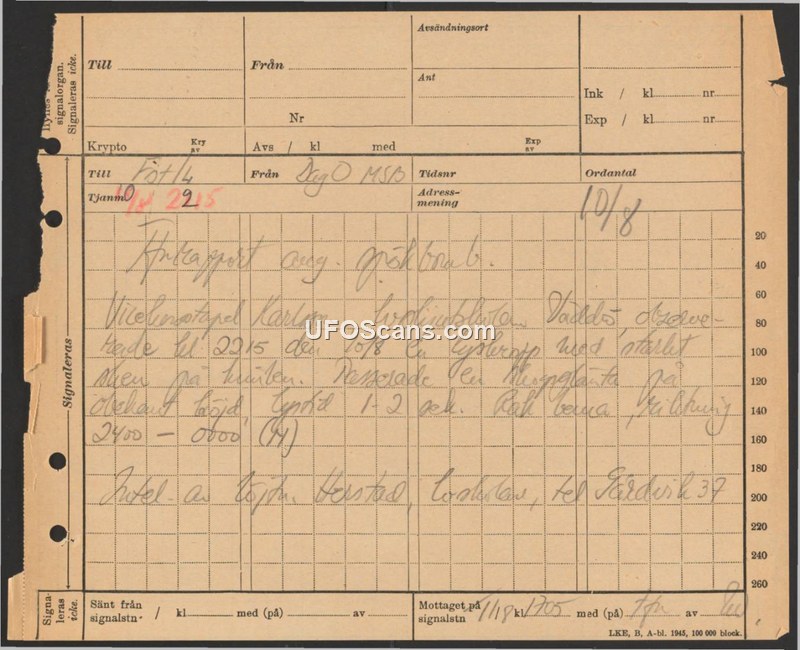 Avsändningsort
Till Från
Ant
Signaleras icke.
signalorgan.
Ink / kl nr
Nr
Exp / kl nr
Krypto Kry av Avs / kl med Exp av
Till Fst/4 Från DagO MSB Tidsnr Ordantal
Tjanm 10/8 2215 2 Adress-mening 10/8
20
rapport ang. spökbomb.
40
60
Väddö, observe-
80
rade kl 2215 den 10/8 en med starkt
100
sken på himlen. Passerade en på
120
obekant höjd, lystid 1-2 sek. Rak bana, riktning
140
2400 – 0000 (M)
160
180
av löjtn. Herstad, tel Gärdvik 37
200
220
240
260
Signaleras
UFOScans.com
Signa-
leras
icke.
Sänt från signalstn / kl med (på) av
Mottaget på signalstn 11/8 kl 1705 med (på) Tfn av
LKE, B, A-bl. 1945, 100 000 block.